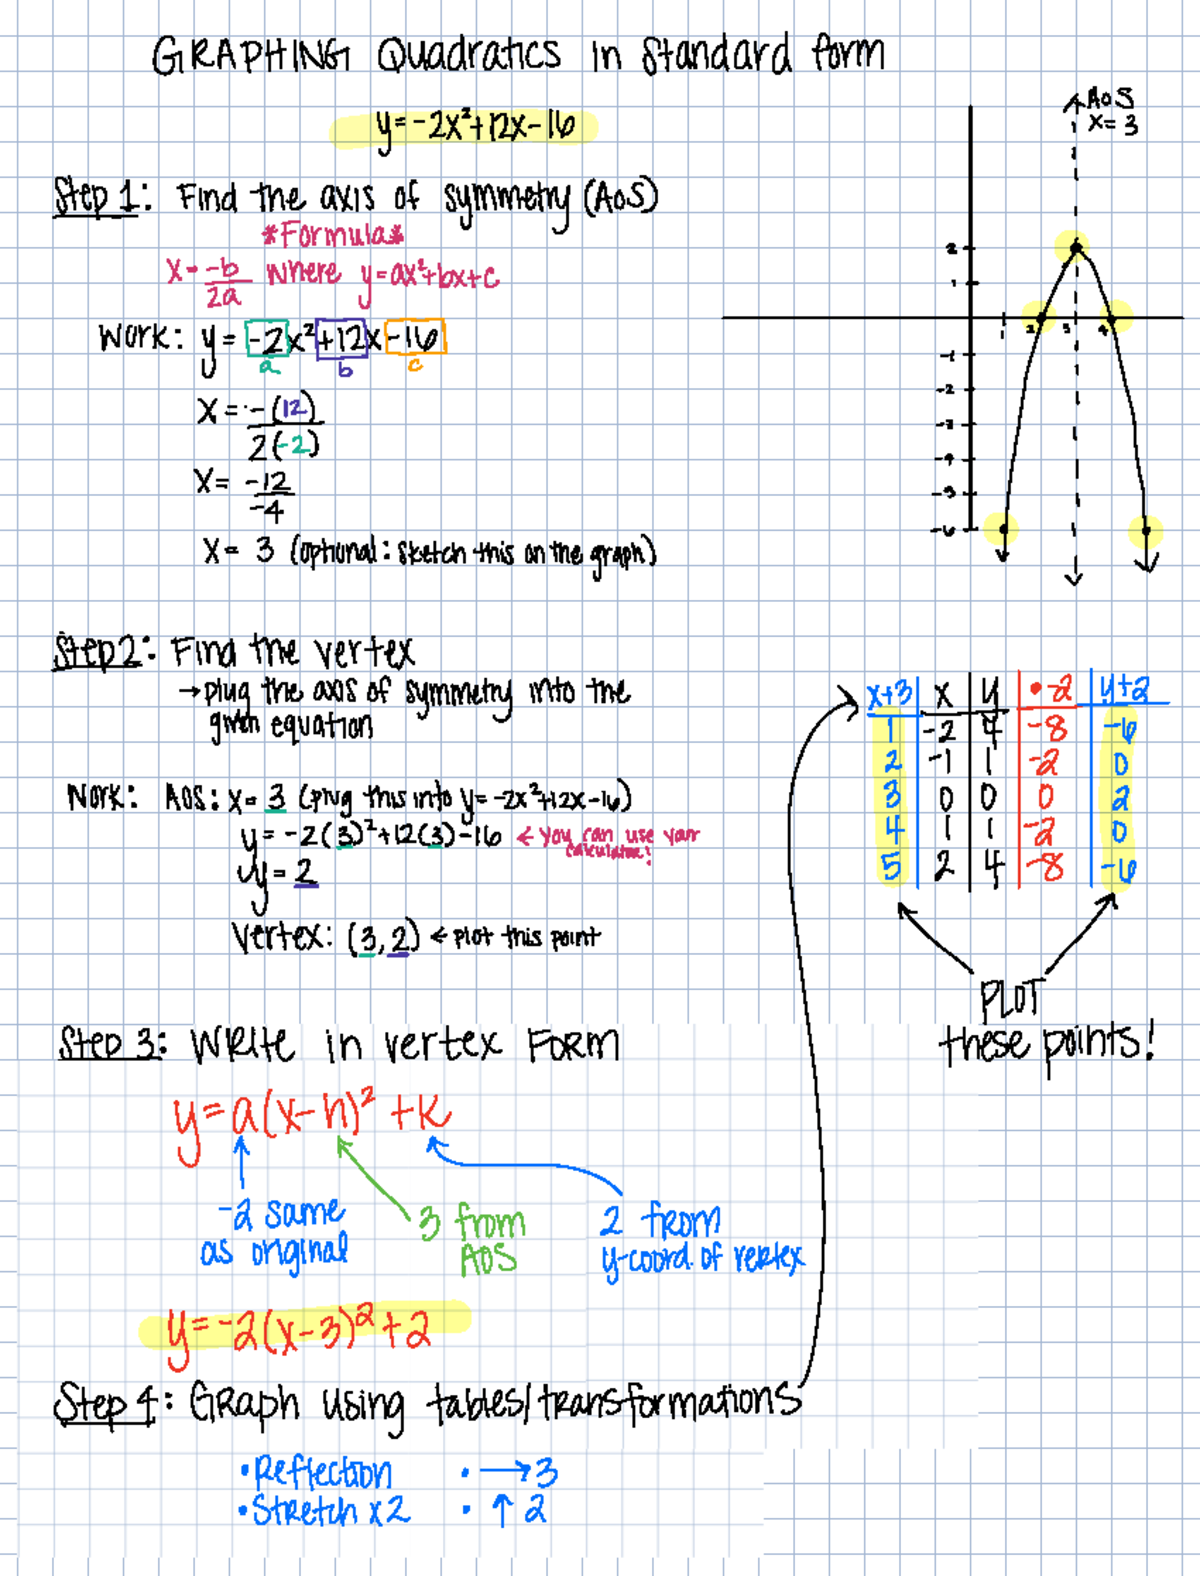 GRAPHING Quadratics in Standard form
y=-2x²+12x-16
Step 1: Find the axis of symmetry (AoS)
*Formula*
x=-b/2a where y=ax²+bx+c
Work: y= -2x²+12x-16
a b c
x=-(12)/2(-2)
x=-12/-4
x= 3 (optional: sketch this on the graph)
AoS
x=3
2
1
1 2 3 4
-1
-2
-3
-4
-5
-6
Step2: Find the vertex
→plug the axis of symmetry into the
given equation
Work: AOS: x= 3 (plug this into y=-2x²+12x-16)
y= -2(3)²+12(3)-16 ← you can use your
calculator!
y= 2
Vertex: (3,2) ← plot this point
x+3 x y •-2 y+2
1 -2 4 -8 -6
2 -1 1 -2 0
3 0 0 0 2
4 1 1 -2 0
5 2 4 -8 -6
PLOT
these points!
Step 3: Write in vertex Form
y=a(x-h)²+k
-2 same
as original
3 from
AOS
2 from
y-coord. of vertex
y=-2(x-3)²+2
Step 4: Graph using tables/transformations
•Reflection •→3
•Stretch x2 •↑2